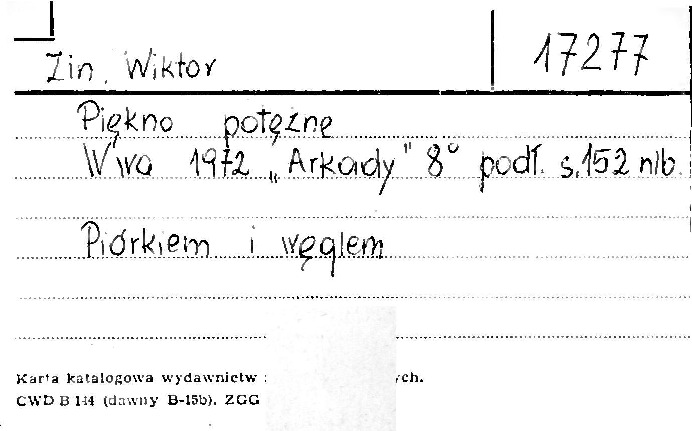 Zin, Wiktor
17277
Piękno potężne
W'wa 1972 „Arkady" 8° podł. s.152 nlb.
Piórkiem i węglem
Karta katalogowa wydawnictw
CWD B 144 (dawny B-15b). ZGG